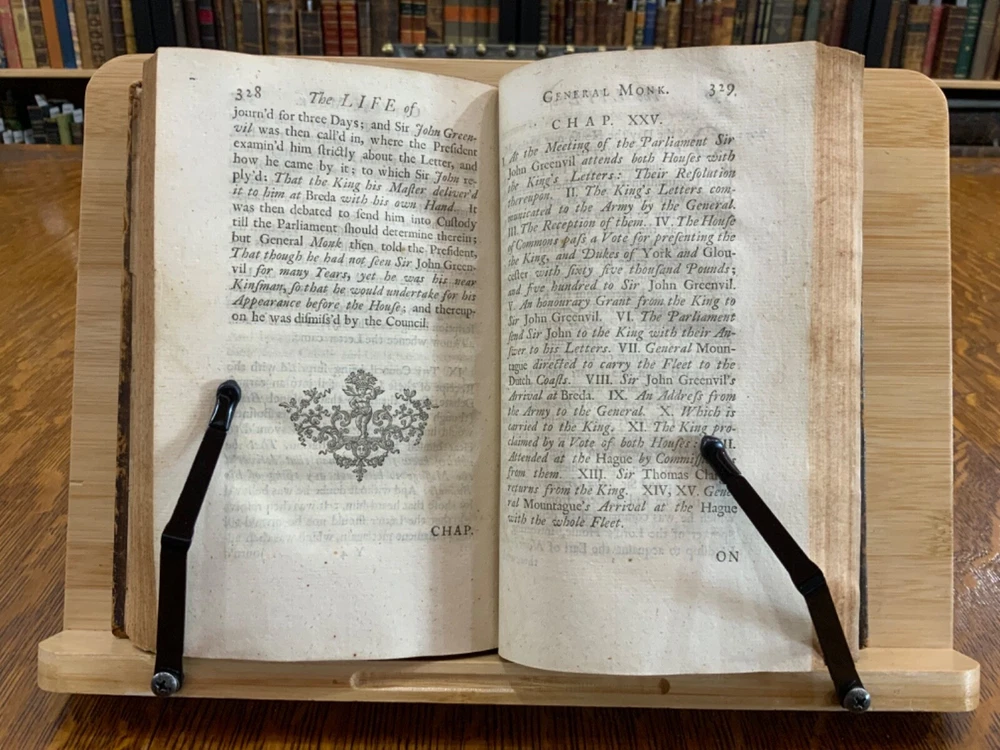 328 The LIFE of
journ'd for three Days; and Sir John Green-
vil was then call'd in, where the President
examin'd him ſtrictly about the Letter, and
how he came by it; to which Sir John re-
ply'd: That the King his Maſter deliver'd
it to him at Breda with his own Hand. It
was then debated to ſend him into Cuſtody
till the Parliament ſhould determine therein;
but General Monk then told the Preſident,
That though he had not ſeen Sir John Green-
vil for many Years, yet he was his near
Kinſman, ſo that he would undertake for his
Appearance before the Houſe; and thereup-
on he was diſmiſs'd by the Council.
CHAP.
GENERAL MONK. 329
CHAP. XXV.
I. At the Meeting of the Parliament Sir
John Greenvil attends both Houſes with
the King's Letters: Their Reſolution
thereupon. II. The King's Letters com-
municated to the Army by the General.
III. The Reception of them. IV. The Houſe
of Commons paſs a Vote for preſenting the
the King, and Dukes of York and Glou-
ceſter with ſixty five thouſand Pounds;
and five hundred to Sir John Greenvil.
V. An honourary Grant from the King to
Sir John Greenvil. VI. The Parliament
ſend Sir John to the King with their An-
ſwer to his Letters. VII. General Moun-
tague directed to carry the Fleet to the
Dutch Coaſts. VIII. Sir John Greenvil's
Arrival at Breda. IX. An Addreſs from
the Army to the General. X. Which is
carried to the King. XI. The King pro-
claimed by a Vote of both Houſes:
Attended at the Hague by
from them. XIII. Sir Thomas
returns from the King. XIV, XV. Gene-
ral Mountague's Arrival at the Hague
with the whole Fleet.
ON